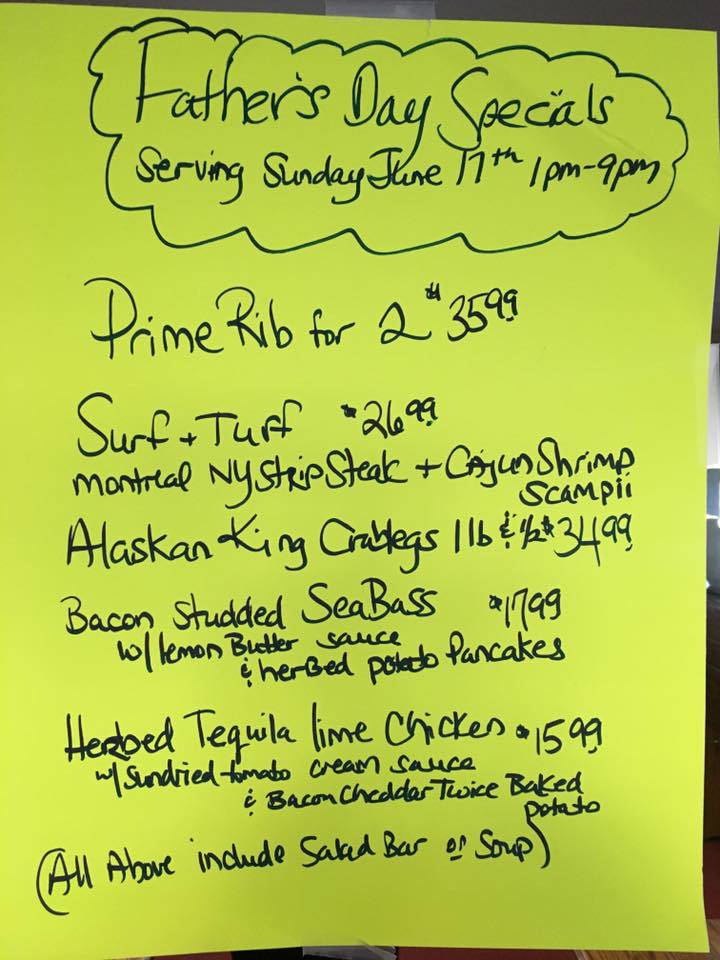 Father's Day Specials
Serving Sunday June 17th 1pm-9pm
Prime Rib for 2 $35.99
Surf + Turf $26.99
Montreal NY Strip Steak + Cajun Shrimp
Scampii
Alaskan King Crablegs 1 lb & 1/2 $34.99
Bacon Studded SeaBass $17.99
w/ lemon Butter sauce
& herbed potato Pancakes
Herbed Tequila lime Chicken $15.99
w/ Sundried tomato cream sauce
& Bacon Cheddar Twice Baked
potato
(All Above include Salad Bar or Soup)